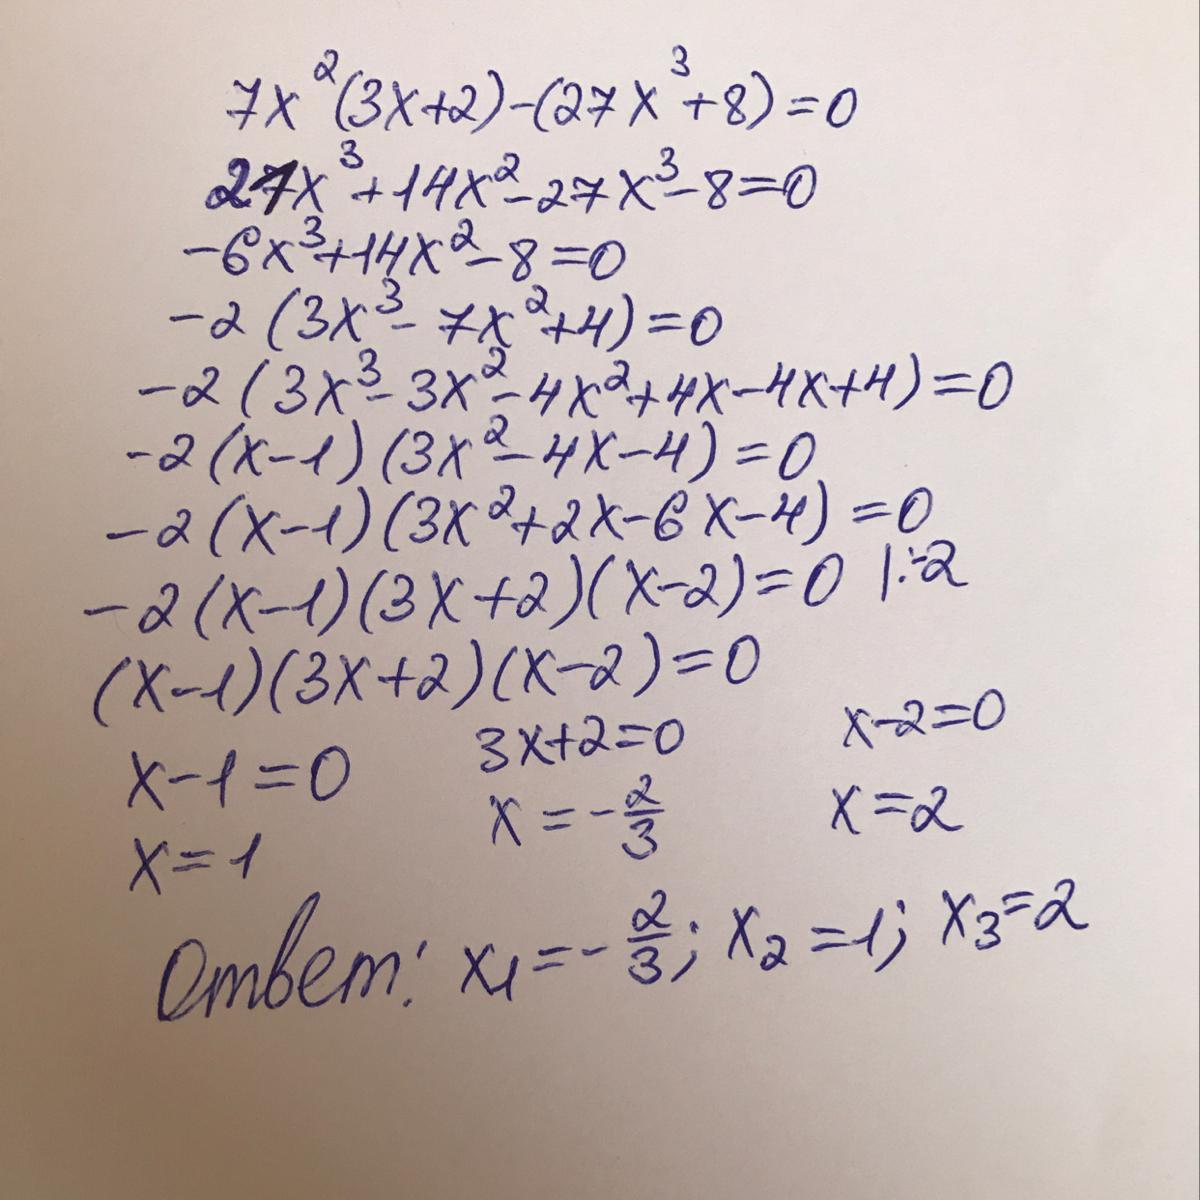 7x²(3x+2)-(27x³+8)=0
27x³+14x²-27x³-8=0
-6x³+14x²-8=0
-2(3x³-7x²+4)=0
-2(3x³-3x²-4x²+4x-4x+4)=0
-2(x-1)(3x²-4x-4)=0
-2(x-1)(3x²+2x-6x-4)=0
-2(x-1)(3x+2)(x-2)=0 |:-2
(x-1)(3x+2)(x-2)=0
x-1=0 3x+2=0 x-2=0
x=1 x=-2/3 x=2
Ответ: x₁=-2/3; x₂=1; x₃=2